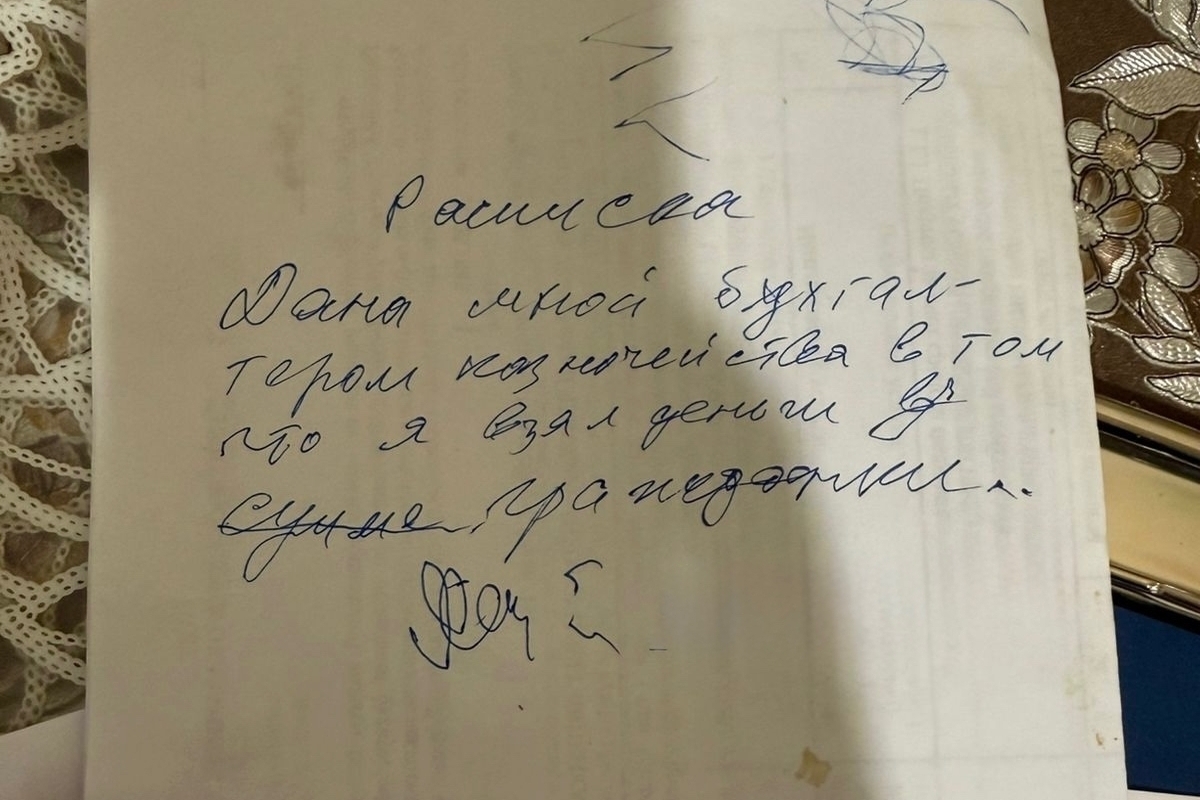 Расписка
Дана мной бухгал-
тером казначейства в том
что я взял деньги в
сумме гражданки